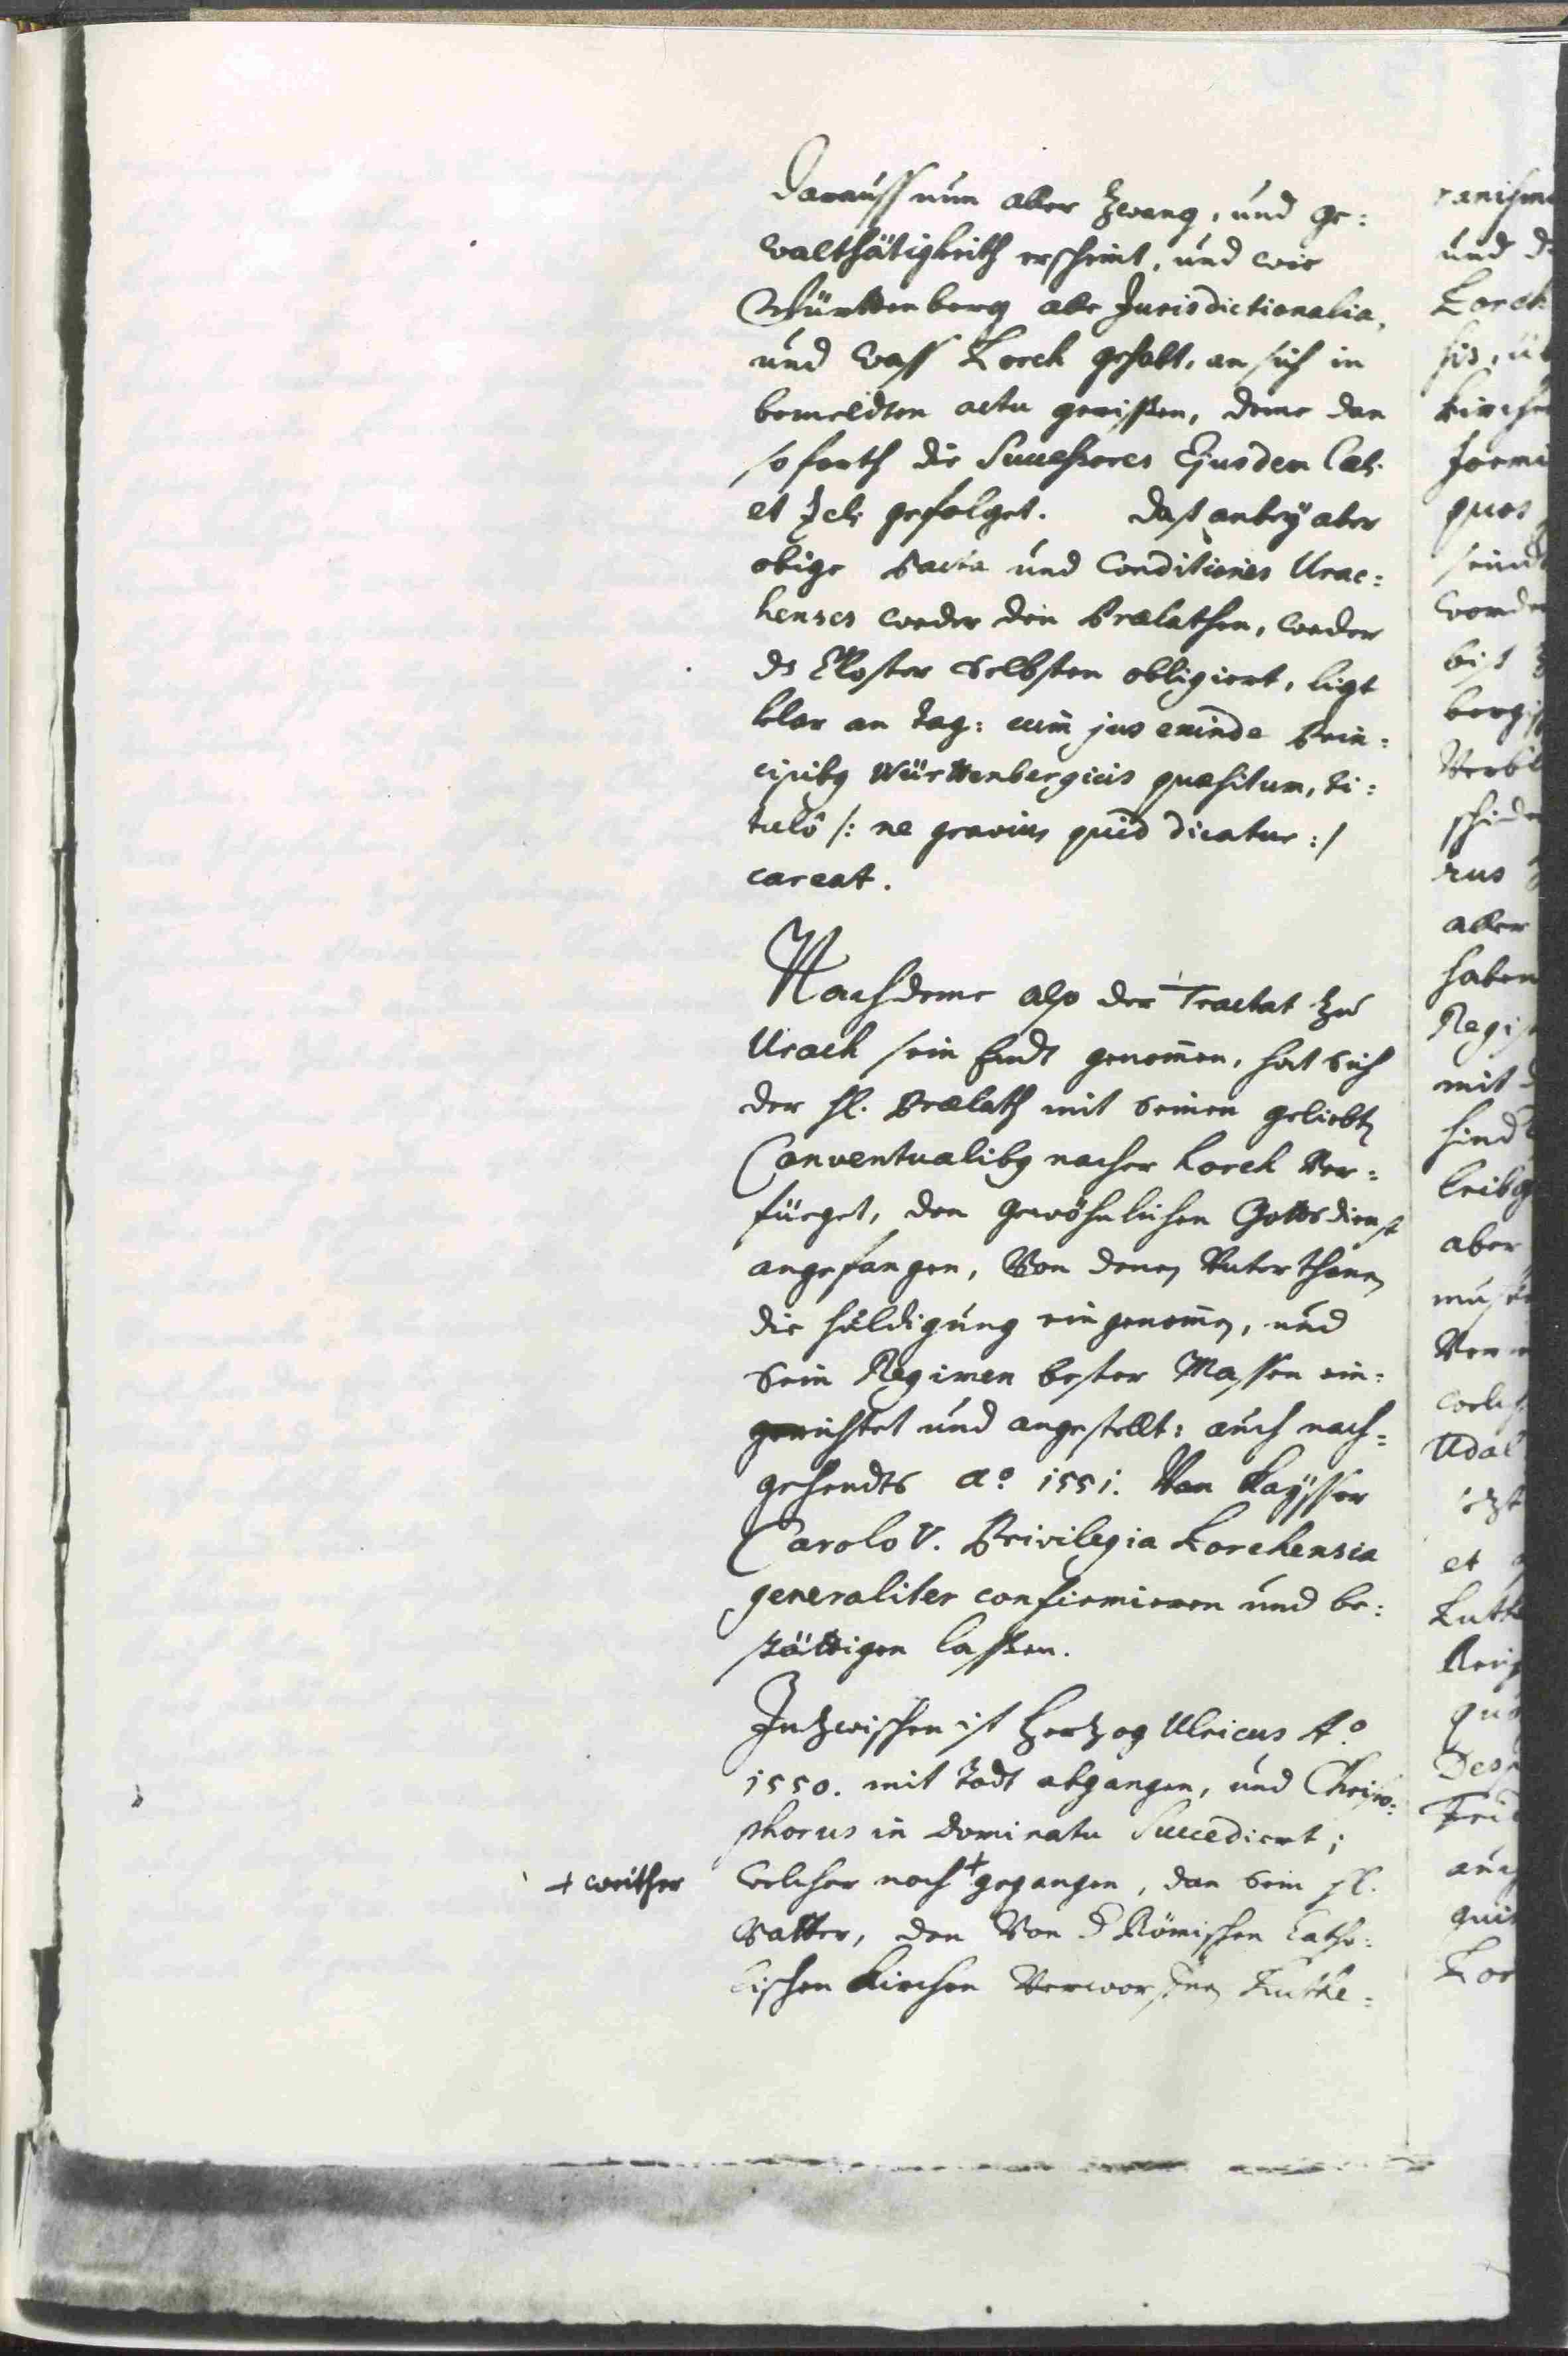 Darauß nun aber Zwang, und ge:
waltthätigkeith erscheint, und wie
Württenberg alle Jurisdictionalia,
und waß Lorch gehabt, an sich in
bemeldten actu gerißen, deme dan
so forth die Successores Ejusdem
et gefolget. Daß anbeÿ aber
obige Pacta und Conditiones Urac:
henses weder den Prælathen, weder
ds Closter Selbsten obligiert, ligt
klar an tag: cum jus exinde Prin:
cipibg Württenbergicis quæsitum, ti:
tulô /: ne gravius quid dicatur :/
careat.
Nachdeme also der Tractat zu
Urach sein Endt genom̄en, hat sich
der H. Prælath mit seinen geliebt
Conventualibg nacher Lorch ver:
füeget, den gewöhnlichen Gottsdienst
angefangen, von denen Unterthanen
die huldigung eingenom̄en, und
sein Regimen bester Massen ein:
gerichtet und angestellt: auch nach:
gehendts Aº 1551. Von Kaÿsser
Carolo V. Privilegia Lorchensia
generaliter confirmieren und be:
stättigen laßen.
Inzwischen ist Hertzog Ulricus Aº
1550. mit Todt abgangen, und Christo:
phorus in Dominatu Succediert;
+ weither
welcher noch + gegangen, dan sein H.
Vatter, den von d Römischen Catho:
lischen Kirchen verworfenen Luthe:
und
Lorch
quos
rus
aber
haben
mit
aber
Udal
et